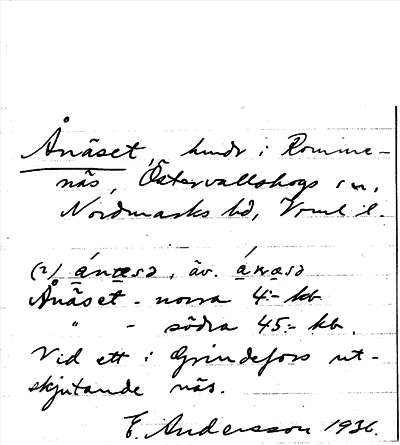 Ånäset, hmdr i Romme-
näs, Östervallskogs sn,
Nordmarks hd, Vrml. l.
(2) ánæsə, äv. áṇasə
Ånäset - norra 4:- kb
" - södra 45:- kb.
Vid ett i Grindefors ut-
skjutande näs.
F. Andersson 1936.